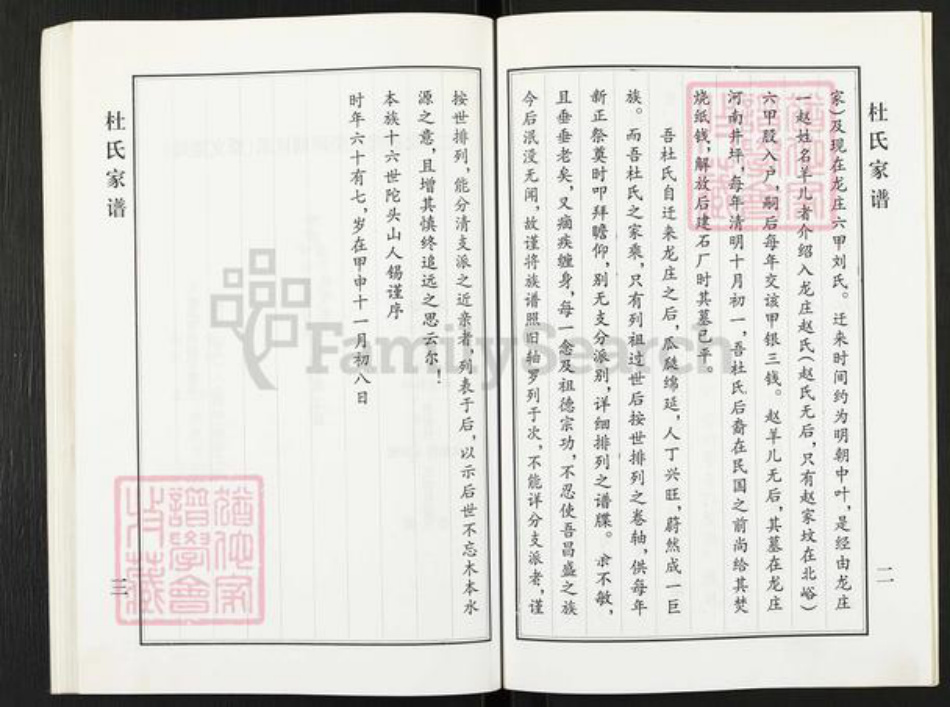 杜氏家谱
家)及现在龙庄六甲刘氏。迁来时间约为明朝中叶,是经由龙庄
一赵姓名羊儿者介绍入龙庄赵氏(赵氏无后,只有赵家坟在北峪)
六甲股入户,嗣后每年交该甲银三钱。赵羊儿无后,其墓在龙庄
河南井坪,每年清明十月初一,吾杜氏后裔在民国之前尚给其焚
烧纸钱,解放后建石厂时其墓已平。
吾杜氏自迁来龙庄之后,瓜瓞绵延,人丁兴旺,蔚然成一巨
族。而吾杜氏之家乘,只有列祖过世后按世排列之卷轴,供每年
新正祭奠时叩拜瞻仰,别无支分派别,详细排列之谱牒。余不敏,
且垂垂老矣,又痼疾缠身,每一念及祖德宗功,不忍使吾昌盛之族
今后泯没无闻,故谨将族谱照旧轴罗列于次,不能详分支派者,谨
二
按世排列,能分清支派之近亲者,列表于后,以示后世不忘木本水
源之意,且增其慎终追远之思云尔!
本族十六世陀头山人锡谨序
时年六十有七,岁在甲申十一月初八日
杜氏家谱
三
FamilySearch